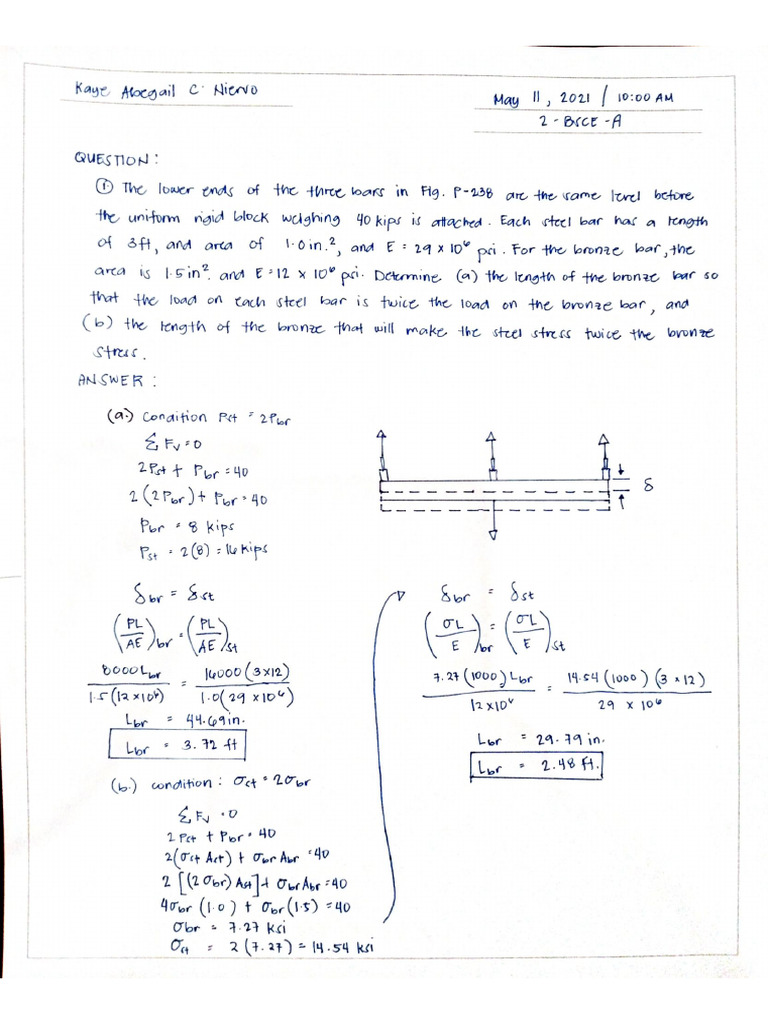 Kaye Abegail C. Niervo
May 11, 2021 / 10:00 AM
2 - BSCE - A
QUESTION:
① The lower ends of the three bars in Fig. P-238 are the same level before
the uniform rigid block weighing 40 kips is attached. Each steel bar has a length
of 3ft, and area of 1.0 in.², and E = 29 x 10⁶ psi. For the bronze bar, the
area is 1.5 in². and E = 12 x 10⁶ psi. Determine (a) the length of the bronze bar so
that the load on each steel bar is twice the load on the bronze bar, and
(b) the length of the bronze that will make the steel stress twice the bronze
stress.
ANSWER:
(a.) condition Pst = 2Pbr
Σ Fv = 0
2Pst + Pbr = 40
2(2Pbr) + Pbr = 40
Pbr = 8 kips
Pst = 2(8) = 16 kips
δ
δbr = δst
(PL/AE)br = (PL/AE)st
8000Lbr / 1.5(12x10⁶) = 16000(3x12) / 1.0(29x10⁶)
Lbr = 44.69 in.
Lbr = 3.72 ft
(b.) condition: σst = 2σbr
Σ Fv = 0
2Pst + Pbr = 40
2(σst Ast) + σbr Abr = 40
2[(2σbr)Ast] + σbr Abr = 40
4σbr(1.0) + σbr(1.5) = 40
σbr = 7.27 ksi
σst = 2(7.27) = 14.54 ksi
δbr = δst
(σL/E)br = (σL/E)st
7.27(1000)Lbr / 12x10⁶ = 14.54(1000)(3x12) / 29 x 10⁶
Lbr = 29.79 in.
Lbr = 2.48 ft.